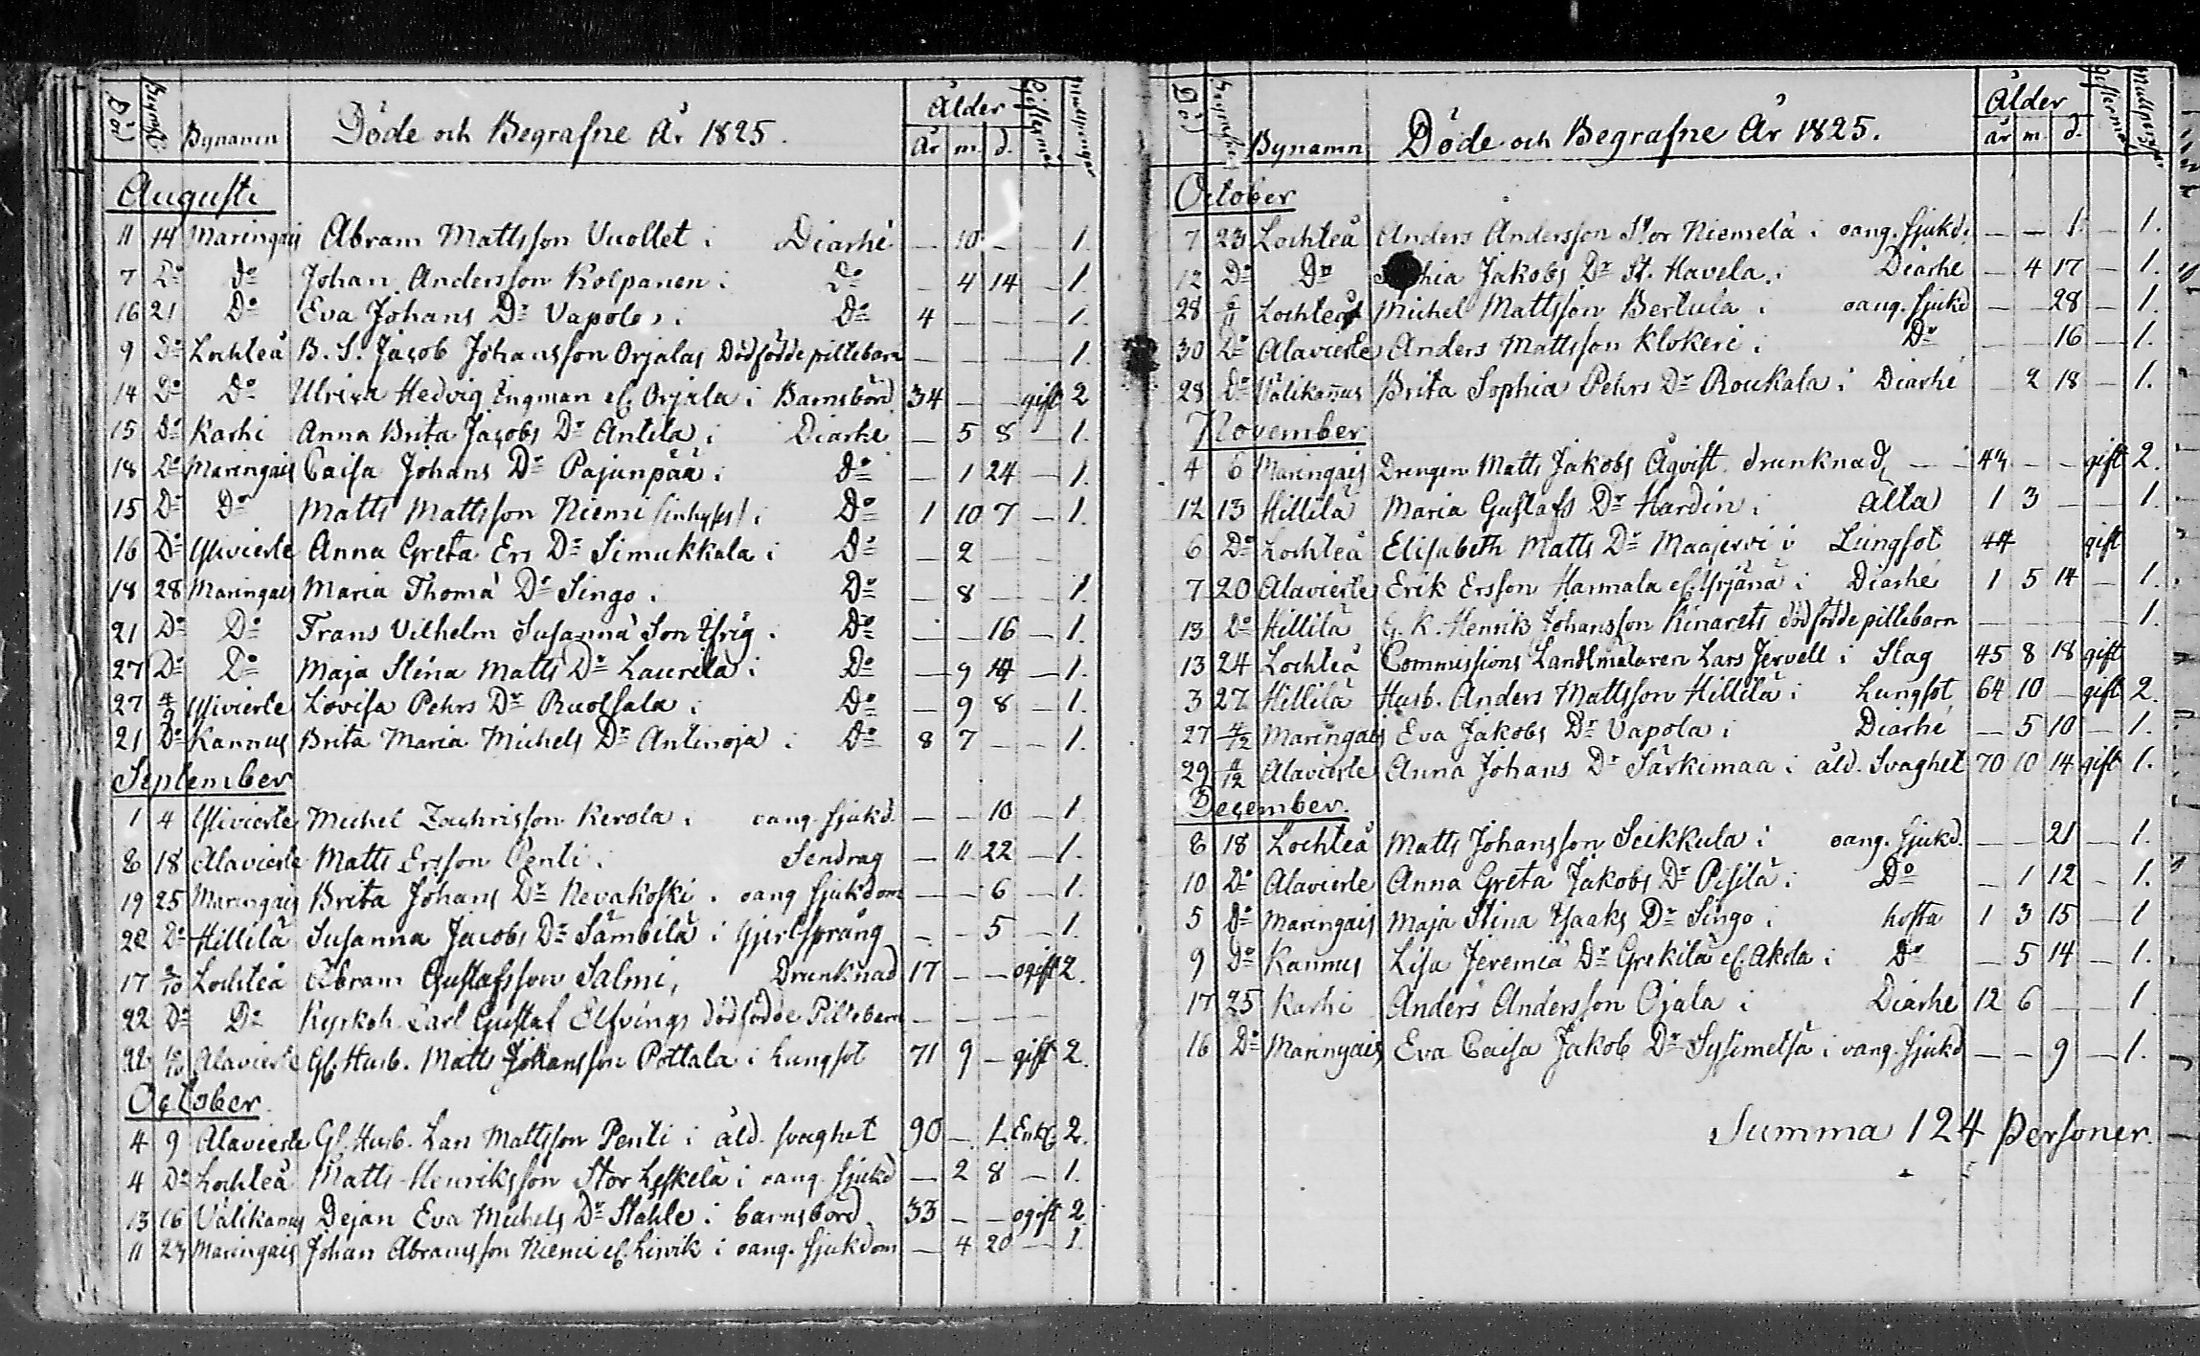 Död Begrafne Bynamn Döde och Begrafne År 1825. Ålder År m. d. Giftermål
Augusti
11 14 Maringais Abram Mattsson Vuollet i Diarhé — 10 — — 1.
7 Do do Johan Andersson Kolpanen i Do — 4 14 — 1.
16 21 Do Eva Johans Dr Vapola i Do 4 — — — 1.
9 Do Lochteå B. S. Jacob Johansson Orjalas Dödfödde pillebarn — — — — 1.
14 Do Do Ulrica Hedvig Engman el. Orjala i Barnsbörd 34 — — gift 2
15 Do Karhi Anna Brita Jacobs Dr Antila i Diarhe — 5 8 — 1.
18 Do Maringais Caisa Johans Dr Pajunpää i Do — 1 24 — 1.
15 Do Do Matts Mattsson Niemi (inhyses) i Do 1 10 7 — 1.
16 Do Ylivierte Anna Greta Ers Dr Simukkala i Do — 2 — —
18 28 Maringais Maria Thomä Dr Singo i Do — 8 — — 1.
21 Do Do Frans Vilhelm Susannä Son Yrig i Do — — 16 — 1.
27 Do Do Maja Stina Matts Dr Laurila i Do — 9 14 — 1.
27 4/9 Ylivierte Lovisa Pehrs Dr Ruotsala i Do — 9 8 — 1.
21 Do Kannus Brita Maria Michels Dr Antinoja i Do 8 7 — — 1.
September
1 4 Ylivierte Michel Zachrisson Kerola i oang. sjukd. — — 10 — 1.
8 18 Alavierte Matts Ersson Penti i Sendrag — 11 22 — 1.
19 25 Maringais Brita Johans Dr Nevakoski i oang sjukdom — — 6 — 1.
22 Do Hillilä Susanna Jacobs Dr Sämbilä i hjertsprång — — 5 — 1.
17 2/10 Lochteå Abram Gustafsson Salmi, Drunknad 17 — — ogift 2.
22 Do Do Kyrkoh. Carl Gustaf Elfvings dödfödde Pillebarn — — — —
22 Alavierte Gl. Husb. Matts Johansson Pottala i Lungsot 71 9 — gift 2.
October
4 9 Alavierte Gl. Husb. Lars Mattsson Penti i åld. svaghet 90 — 1. Enkl. 2.
4 Do Lochteå Matts Henriksson Stor Lyskelä i oang. sjukd — 2 8 — 1.
13 16 Välikanus Dejan Eva Michels Dr Stahle i barnsbörd 33 — — ogift 2
11 23 Maringais Johan Abramsson Niemi el. Linvik i oang. sjukdom — 4 20 — 1.
Död Begrafne Bynamn Döde och Begrafne År 1825. Ålder år m. d. Giftermål
October
7 23 Lochteå Anders Andersson Stor Niemelä i oang. sjukd. — — 1. — 1.
12 Do Do Sophia Jakobs Dr St. Havela i Diarhe — 4 17 — 1.
28 Lochteå Michel Mattsson Bertula i oang. sjukd — — 28 — 1.
30 Do Alavierte Anders Mattsson Klokeri i Do — — 16 — 1.
28 Do Välikanus Brita Sophia Pehrs Dr Roukala i Diarhé — 2 18 — 1.
November
4 6 Maringais Drengen Matts Jakobs Åqvist drunknad — — gift 2.
12 13 Hillilä Maria Gustafs Dr Hardin i Alta 1 3 — — 1.
6 Do Lochteå Elisabeth Matts Dr Maajervi i Lungsot 44 gift
7 20 Alavierte Erik Ersson Hannala el. Yrjänä i Diarhé 1 5 14 — 1.
13 Do Hillilä Henrik Johansson Kinarets dödfödde pillebarn — — — — 1.
13 24 Lochteå Commissions Landtmätaren Lars Jervell i Slag 45 8 18 gift
3 27 Hillilä Husb. Anders Mattsson Hillilä i Lungsot 64 10 — gift 2.
27 4/12 Maringais Eva Jakobs Dr Vapola i Diarhé — 5 10 — 1.
29 4/12 Alavierte Anna Johans Dr Särkimaa i åld. Svaghet 70 10 14 gift 1.
December.
8 18 Lochteå Matts Johansson Seikkula i oang. sjukd. — — 21 — 1.
10 Do Alavierte Anna Greta Jakobs Dr Pisilä i Do — 1 12 — 1.
5 Do Maringais Maja Stina Isaaks Dr Singo i hosta 1 3 15 — 1
9 Do Kannus Lisa Jeremiä Dr Grekilä el. Akola i Do — 5 14 — 1.
17 25 Karhi Anders Andersson Ojala i Diarhé 12 6 — — 1
16 Do Maringais Eva Caisa Jakob Dr Sysimetsä i oang. sjukd — — 9 — 1.
Summa 124 Personer.